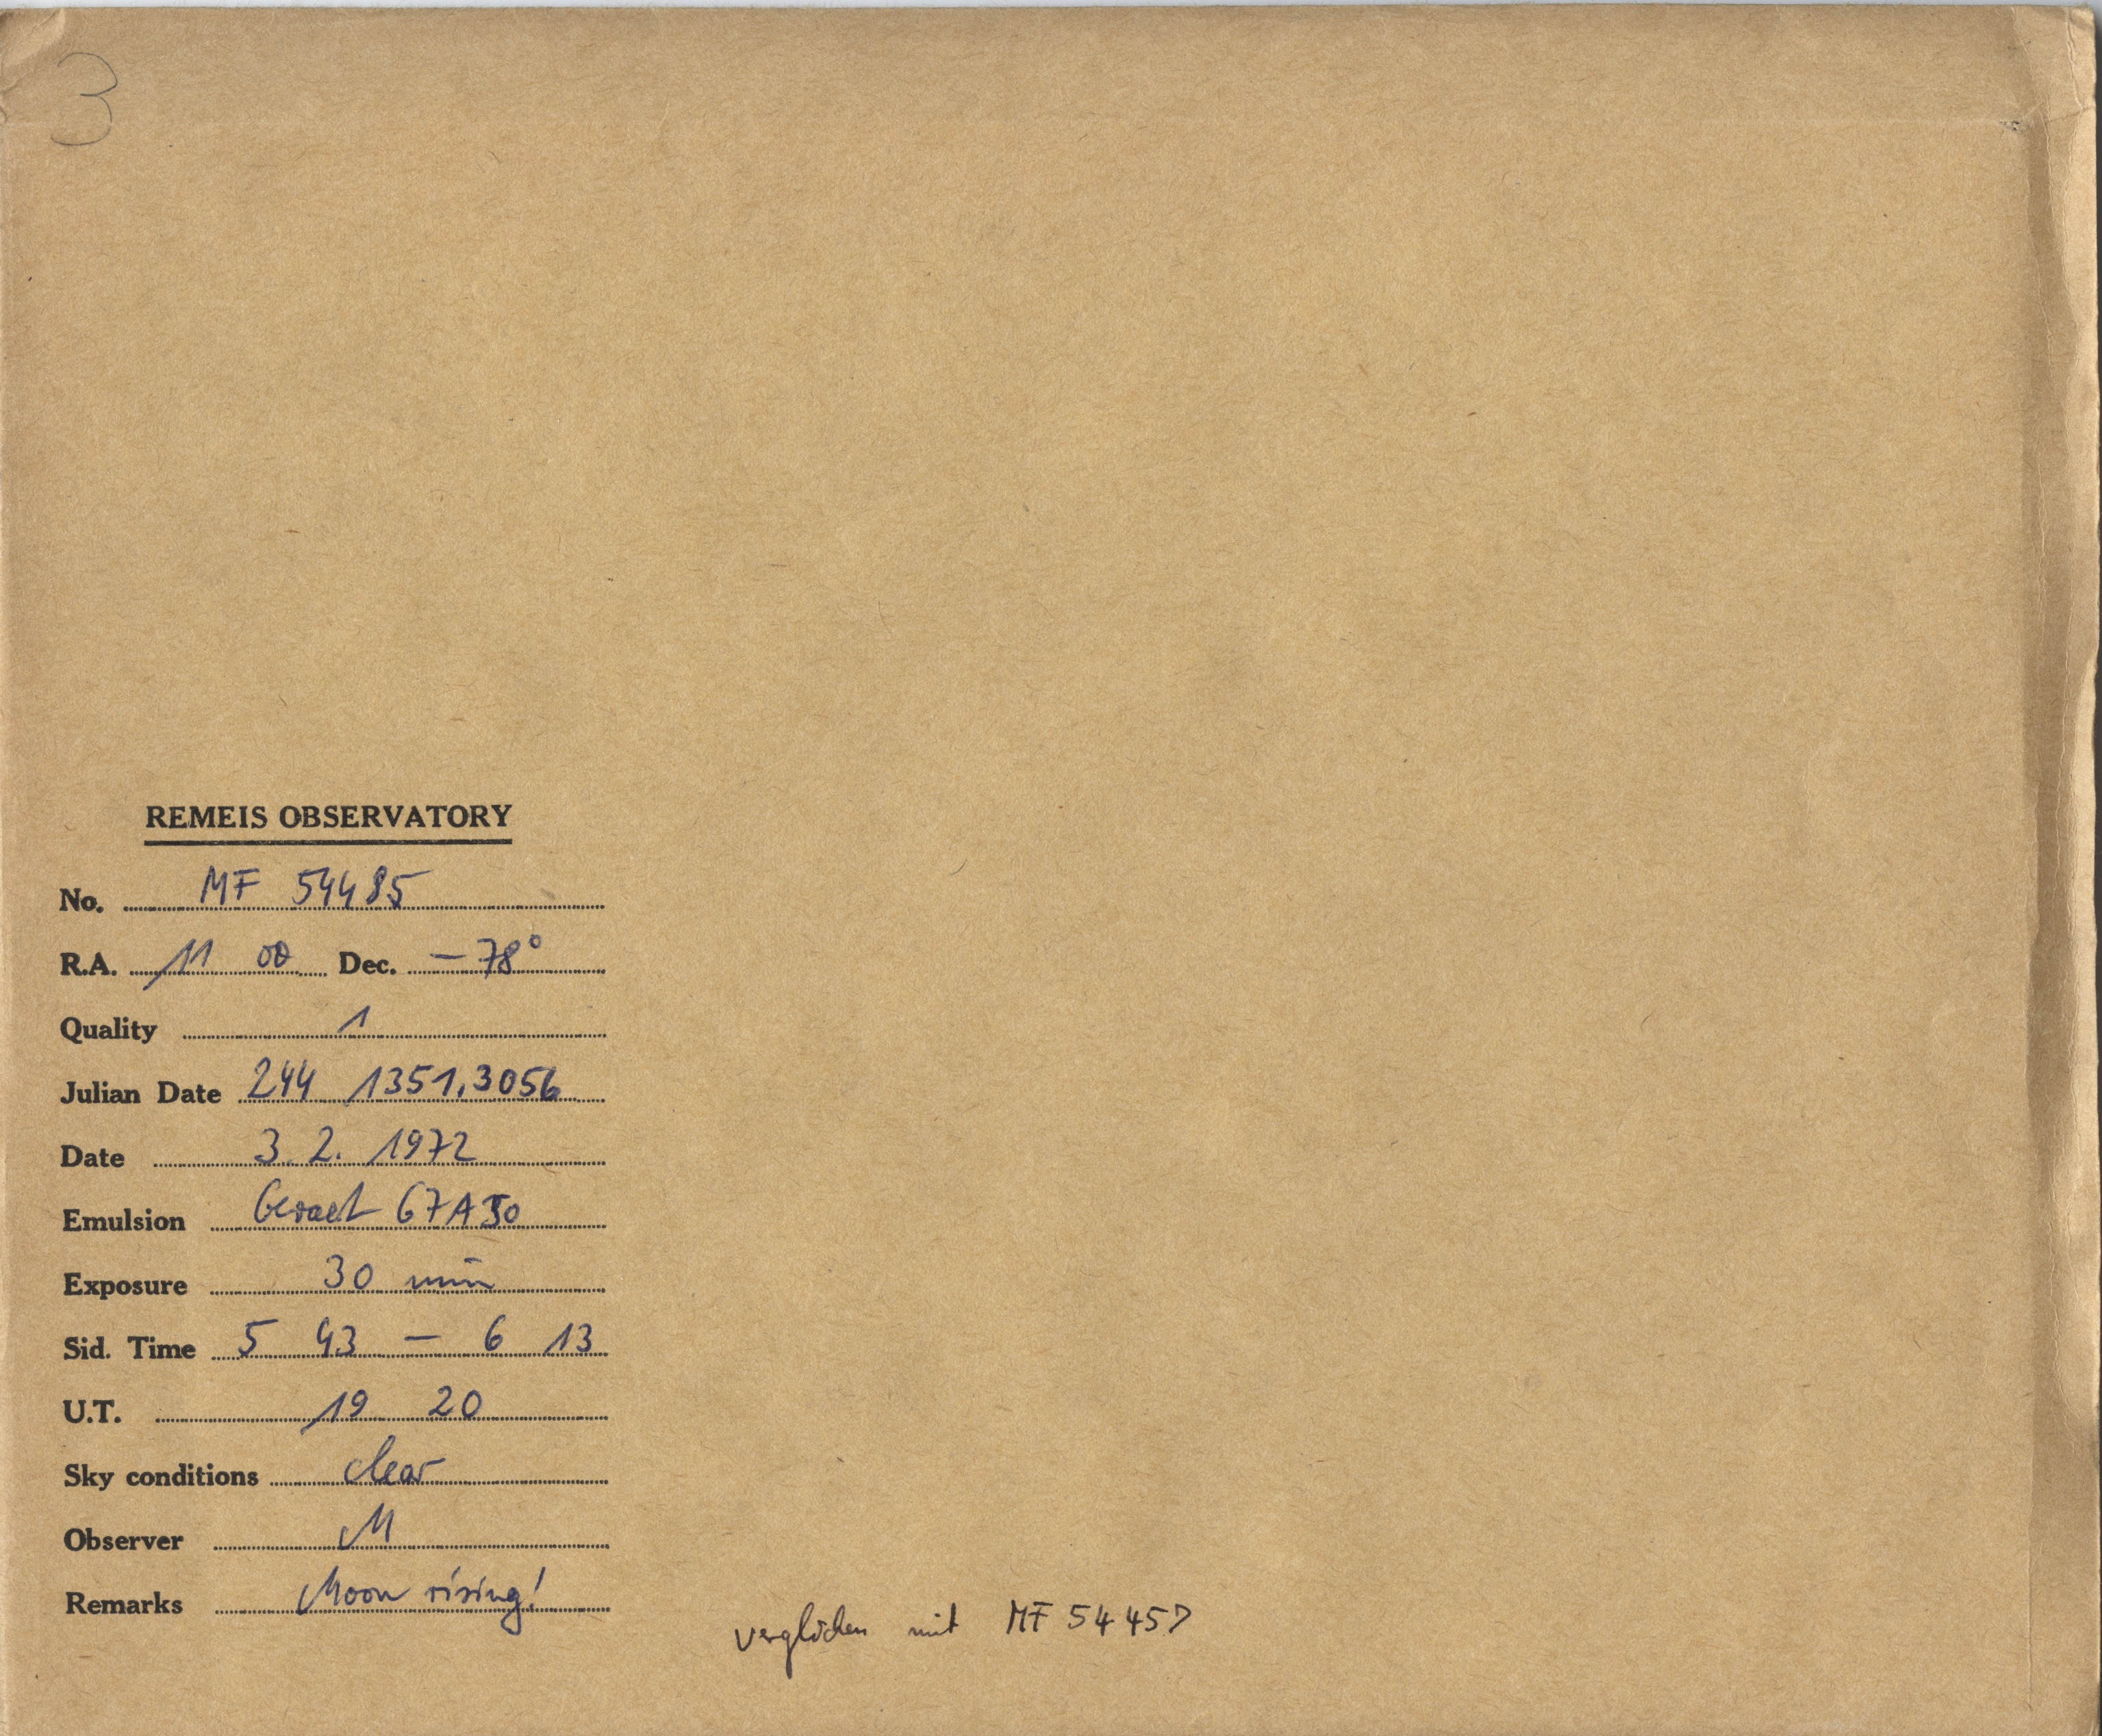 3
REMEIS OBSERVATORY
No. MF 54485
R.A. 11 00 Dec. -78°
Quality 1
Julian Date 244 1351,3056
Date 3. 2. 1972
Emulsion Gevaert 67A50
Exposure 30 min
Sid. Time 5 43 — 6 13
U.T. 19 20
Sky conditions clear
Observer M
Remarks Moon rising!
verglichen mit MF 54457